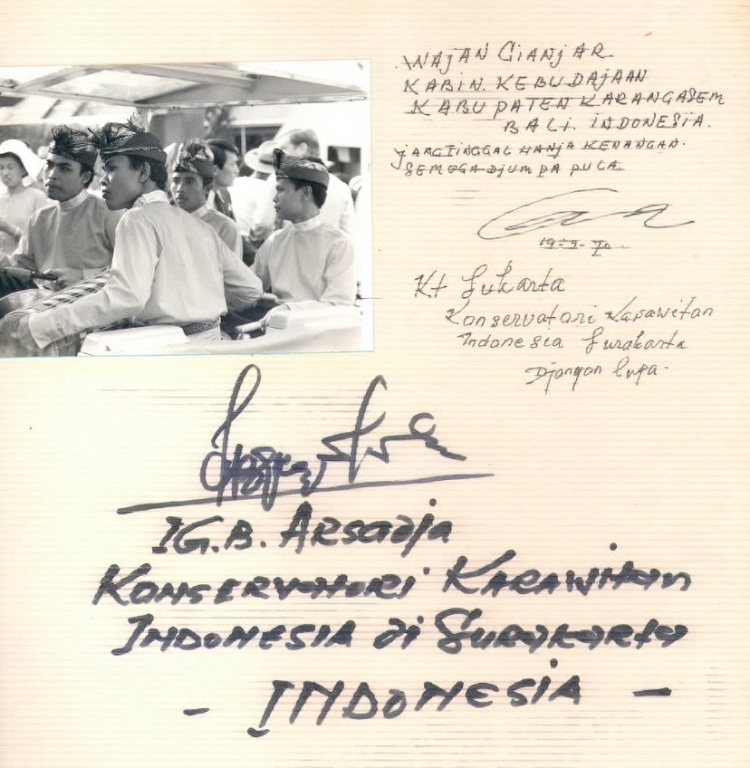 WAJAN GIANJAR
KABIN. KEBUDAJAAN
KABUPATEN KARANGASEM
BALI. INDONESIA.
JANG TINGGAL HANJA KENANGAN.
SEMOGA DJUMPA PULA
19-9-70.
Kt Sukarta
Konservatori Karawitan
Indonesia Surakarta
Djangan lupa.
IG.B. ARSADJA
KONSERVATORI KARAWITAN
INDONESIA di SURAKARTA
- INDONESIA -